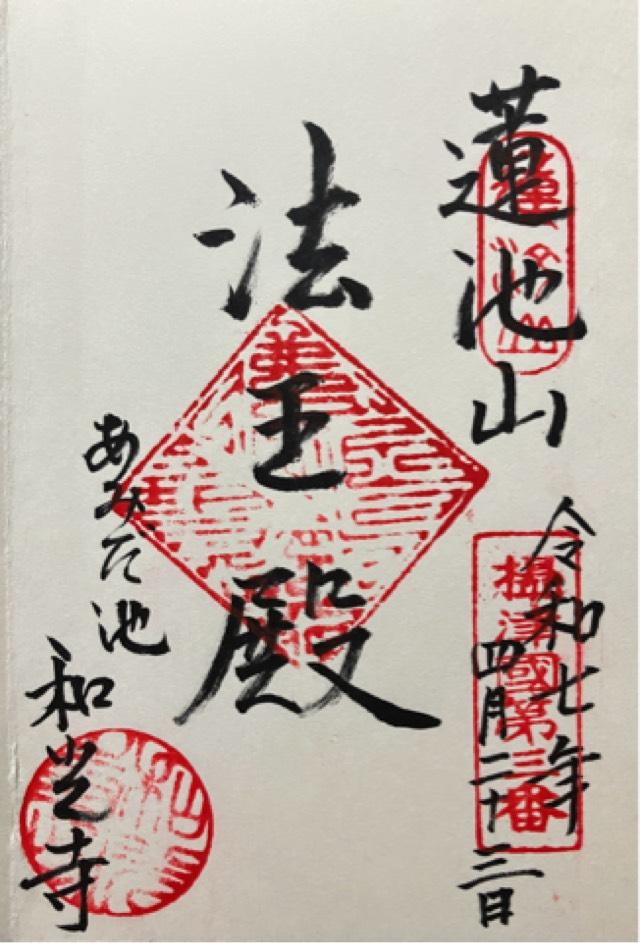 蓮池山
蓮池山
令和七年
四月二十三日
摂津國第三番
法王殿
あみだ池
和光寺